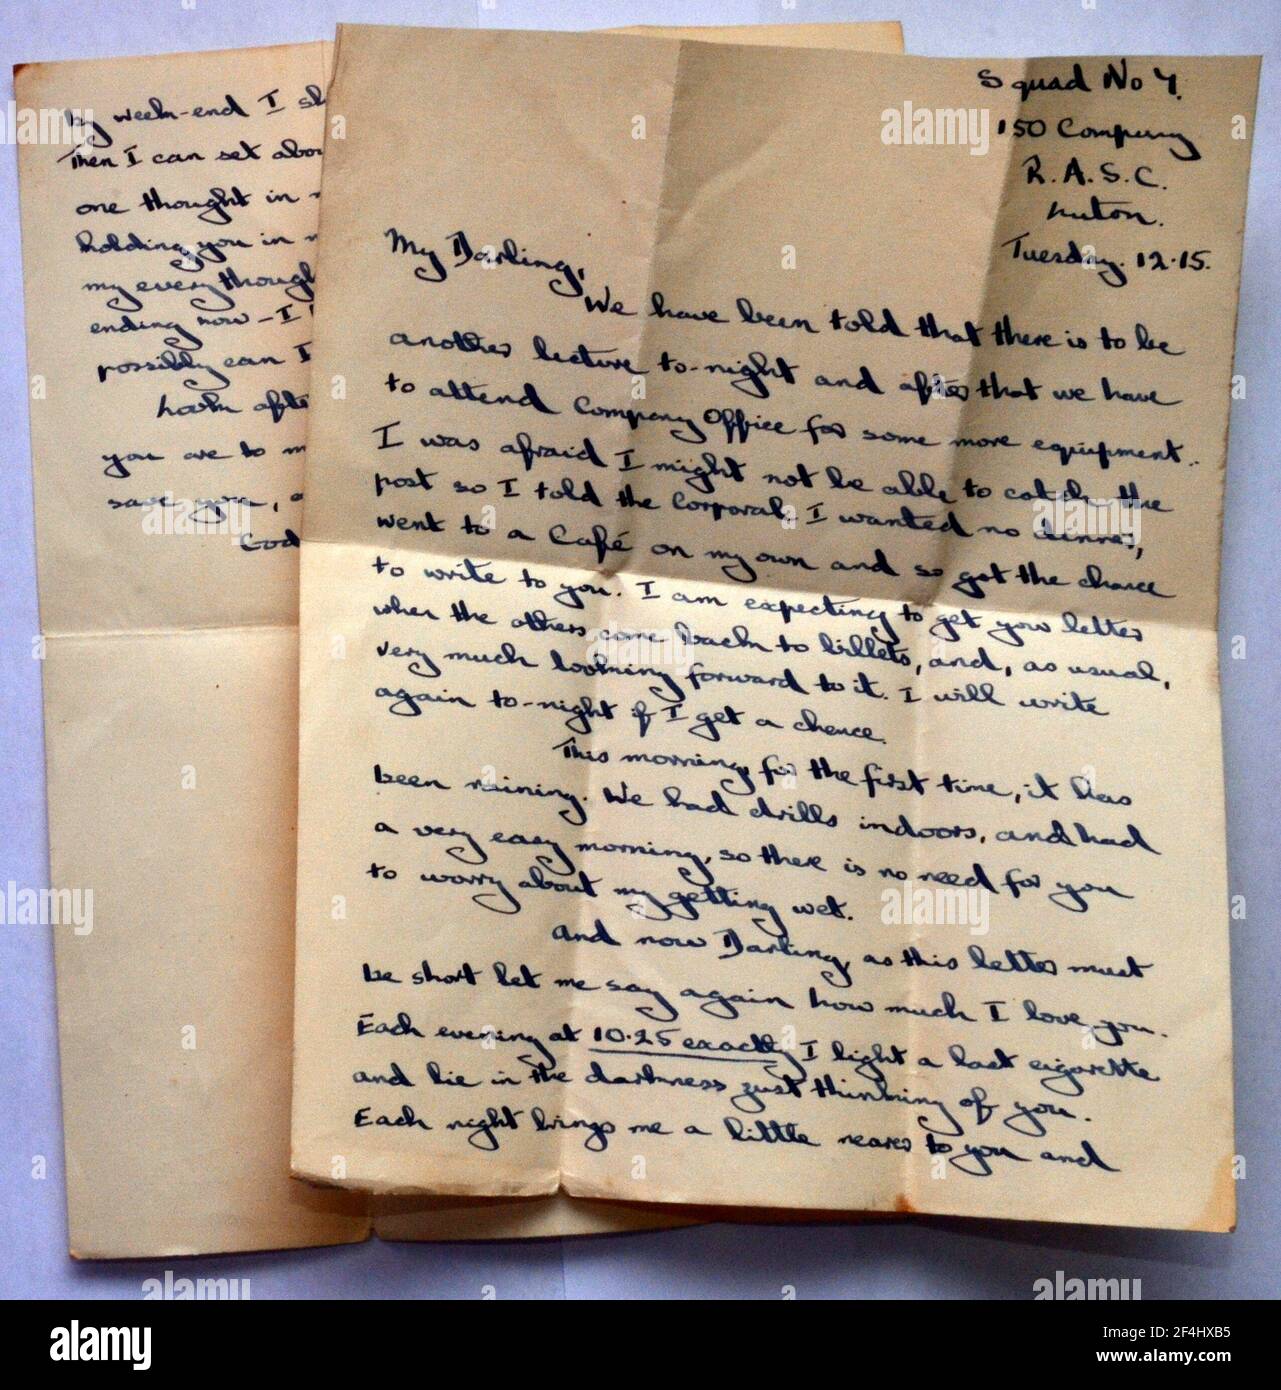 Squad No 4.
150 Company
R.A.S.C.
Luton.
Tuesday. 12.15.
My Darling,
We have been told that there is to be
another lecture to-night and after that we have
to attend Company Office for some more equipment.
I was afraid I might not be able to catch the
post so I told the Corporal I wanted no dinner,
went to a Café on my own and so got the chance
to write to you. I am expecting to get your letter
when the others come back to billets, and, as usual,
very much looking forward to it. I will write
again to-night if I get a chance.
This morning, for the first time, it has
been raining. We had drills indoors, and had
a very easy morning, so there is no need for you
to worry about my getting wet.
And now Darling, as this letter must
be short let me say again how much I love you.
Each evening at 10.25 exactly I light a last cigarette
and lie in the darkness just thinking of you.
Each night brings me a little nearer to you and
by week-end I
Then I can set
one thought in
holding you in
my every
ending now - I
possibly can I
you are to
save you,
alamy
Image ID: 2F4HXB5
www.alamy.com